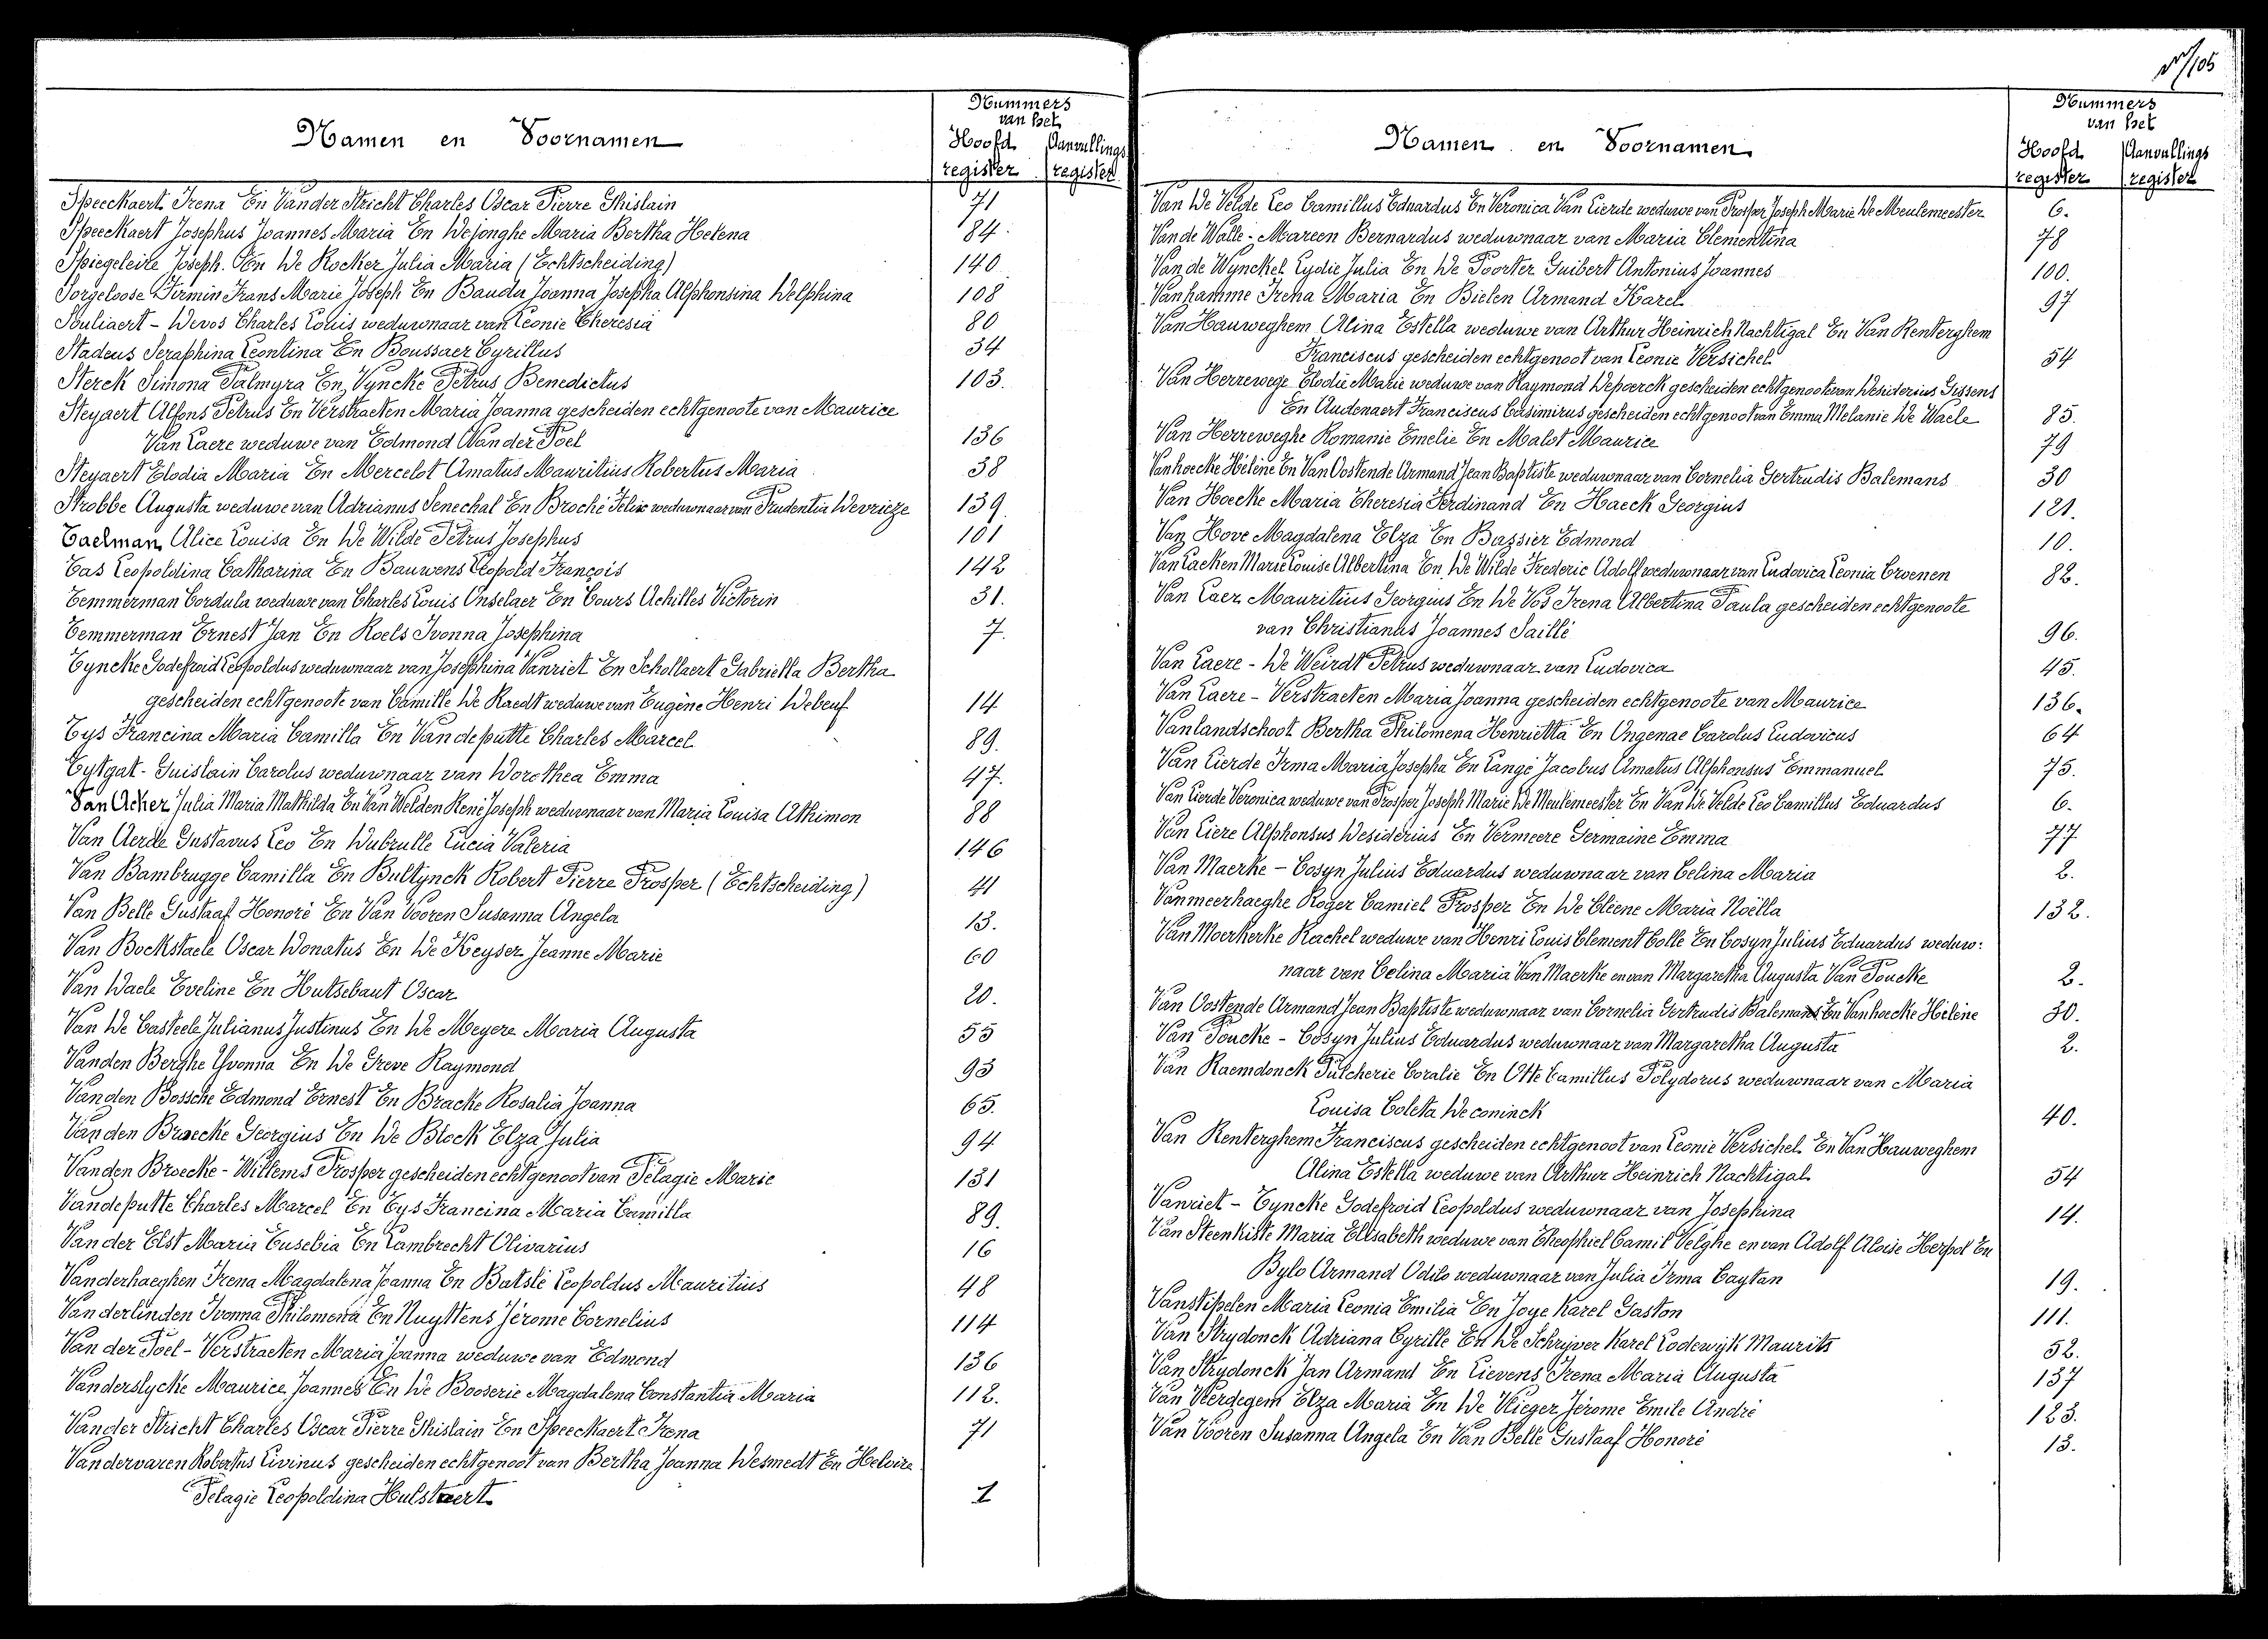 105
Namen en Voornamen
Nummers
van het
Hoofd register
Aanvullings register
Speeckaert Irena En Vander Stricht Charles Oscar Pierre Ghislain 71
Speeckaert Josephus Joannes Maria En Dejonghe Maria Bertha Helena 84
Spiegeleire Joseph. En De Kocker Julia Maria (Echtscheiding) 140
Sorgeloose Firmin Frans Marie Joseph En Bauda Joanna Josepha Alphonsina Delphina 108
Souliaert - Devos Charles Louis weduwnaar van Leonie Theresia 80
Stadeus Seraphina Leontina En Boussaer Cyrillus 34
Sterck Simona Palmyra En Vyncke Petrus Benedictus 103.
Steyaert Alfons Petrus En Verstraeten Maria Joanna gescheiden echtgenoote van Maurice
Van Laere weduwe van Edmond Van der Poel 136
Steyaert Elodia Maria En Mercelot Amatus Mauritius Robertus Maria 38
Strobbe Augusta weduwe van Adrianus Senechal En Broché Felix weduwnaar van Prudentia Devrieze 139.
Taelman Alice Louisa En De Wilde Petrus Josephus 101
Tas Leopoldina Catharina En Bauwens Leopold François 142
Temmerman Cordula weduwe van Charles Louis Onselaer En Cours Achilles Victorin 31.
Temmerman Ernest Jan En Roels Ivonna Josephina 7.
Tyncke Godefroid Leopoldus weduwnaar van Josephina Vanriet En Schollaert Gabriella Bertha
gescheiden echtgenoote van Camille De Raedt weduwe van Eugène Henri Debeuf 14
Tys Francina Maria Camilla En Vandeputte Charles Marcel 89.
Tytgat - Guislain Carolus weduwnaar van Dorothea Emma 47.
Van Acker Julia Maria Mathilda En Van Welden René Joseph weduwnaar van Maria Louisa Athimon 88
Van Aerde Gustavus Leo En Dubrulle Lucia Valeria 146
Van Bambrugge Camilla En Bultynck Robert Pierre Prosper (Echtscheiding) 41
Van Belle Gustaaf Honoré En Van Vooren Susanna Angela 13.
Van Bockstaele Oscar Donatus En De Keyser Jeanne Marie 60
Van Daele Eveline En Hutsebaut Oscar 20.
Van De Casteele Julianus Justinus En De Meyere Maria Augusta 55
Vanden Berghe Yvonna En De Greve Raymond 93
Vanden Bossche Edmond Ernest En Bracke Rosalia Joanna 65.
Van den Broecke Georgius En De Block Elza Julia 94
Vanden Broecke - Willems Prosper gescheiden echtgenoot van Pelagie Marie 131
Vandeputte Charles Marcel En Tys Francina Maria Camilla 89.
Van der Elst Maria Eusebia En Lambrecht Olivarius 16
Vanderhaeghen Irena Magdalena Joanna En Batslé Leopoldus Mauritius 48
Vanderlinden Ivonna Philomena En Nuyttens Jérome Cornelius 114
Van der Poel - Verstraeten Maria Joanna weduwe van Edmond 136
Vanderslycke Maurice Joannes En De Booserie Magdalena Constantia Maria 112.
Vander Stricht Charles Oscar Pierre Ghislain En Speeckaert Irena 71
Vandervaren Robertus Livinus gescheiden echtgenoot van Bertha Joanna Desmedt En Helvire
Pelagie Leopoldina Hulstaert 1
Namen en Voornamen
Nummers
van het
Hoofd register
Aanvullings register
Van De Velde Leo Camillus Eduardus En Veronica Van Lierde weduwe van Prosper Joseph Marie De Meulemeester 6.
Van de Walle - Mareen Bernardus weduwnaar van Maria Clementina 78
Van de Wynckel Lydie Julia En De Poorter Guibert Antonius Joannes 100.
Vanhamme Irena Maria En Bielen Armand Karel 97
Van Hauweghem Alina Estella weduwe van Arthur Heinrich Nachtigal En Van Renterghem
Franciscus gescheiden echtgenoot van Leonie Versichel 54
Van Herrewege Elodie Marie weduwe van Raymond Depaerck gescheiden echtgenoote van Desiderius Gessens
En Audenaert Franciscus Casimirus gescheiden echtgenoot van Emma Melanie De Waele 85.
Van Herreweghe Romanie Emelie En Malot Maurice 79
Vanhoecke Hélène En Van Oostende Armand Jean Baptiste weduwnaar van Cornelia Gertrudis Balemans 30
Van Hoecke Maria Theresia Ferdinand En Haeck Georgius 121.
Van Hove Magdalena Elza En Bassier Edmond 10.
Van Laeken Marie Louise Albertina En De Wilde Frederic Adolf weduwnaar van Ludovica Leonia Croenen 82.
Van Laer Mauritius Georgius En De Vos Irena Albertina Paula gescheiden echtgenoote
van Christianus Joannes Saillé 96.
Van Laere - De Weirdt Petrus weduwnaar van Ludovica 45.
Van Laere - Verstraeten Maria Joanna gescheiden echtgenoote van Maurice 136.
Vanlandschoot Bertha Philomena Henrietta En Ongenae Carolus Ludovicus 64
Van Lierde Irma Maria Josepha En Langé Jacobus Amatus Alphonsus Emmanuel 75.
Van Lierde Veronica weduwe van Prosper Joseph Marie De Meulemeester En Van De Velde Leo Camillus Eduardus 6.
Van Liere Alphonsus Desiderius En Vermeere Germaine Emma 77
Van Maerke - Cosyn Julius Eduardus weduwnaar van Celina Maria 2.
Vanmeerhaeghe Roger Camiel Prosper En De Cleene Maria Noëlla 132.
Van Moerkerke Rachel weduwe van Henri Louis Clement Colle En Cosyn Julius Eduardus weduw:
naar van Celina Maria Van Maerke en van Margaretha Augusta Van Poucke 2.
Van Oostende Armand Jean Baptiste weduwnaar van Cornelia Gertrudis Balemans En Vanhoecke Hélène 30.
Van Poucke - Cosyn Julius Eduardus weduwnaar van Margaretha Augusta 2.
Van Raemdonck Pulcherie Coralie En Otte Camillus Polydorus weduwnaar van Maria
Louisa Coleta Deconinck 40.
Van Renterghem Franciscus gescheiden echtgenoot van Leonie Versichel En Van Hauweghem
Alina Estella weduwe van Arthur Heinrich Nachtigal 54
Vanriet - Tyncke Godefroid Leopoldus weduwnaar van Josephina 14.
Van Steenkiste Maria Elisabeth weduwe van Theophiel Camil Velghe en van Adolf Aloise Herpol En
Bylo Armand Odilo weduwnaar van Julia Irma Caytan 19.
Vanstipelen Maria Leonia Emilia En Joye Karel Gaston 111.
Van Strydonck Adriana Cyrille En De Schrijver Karel Lodewijk Maurits 52.
Van Strydonck Jan Armand En Lievens Irena Maria Augusta 137
Van Verdegem Elza Maria En De Vlieger Jérome Emile André 123.
Van Vooren Susanna Angela En Van Belle Gustaaf Honoré 13.